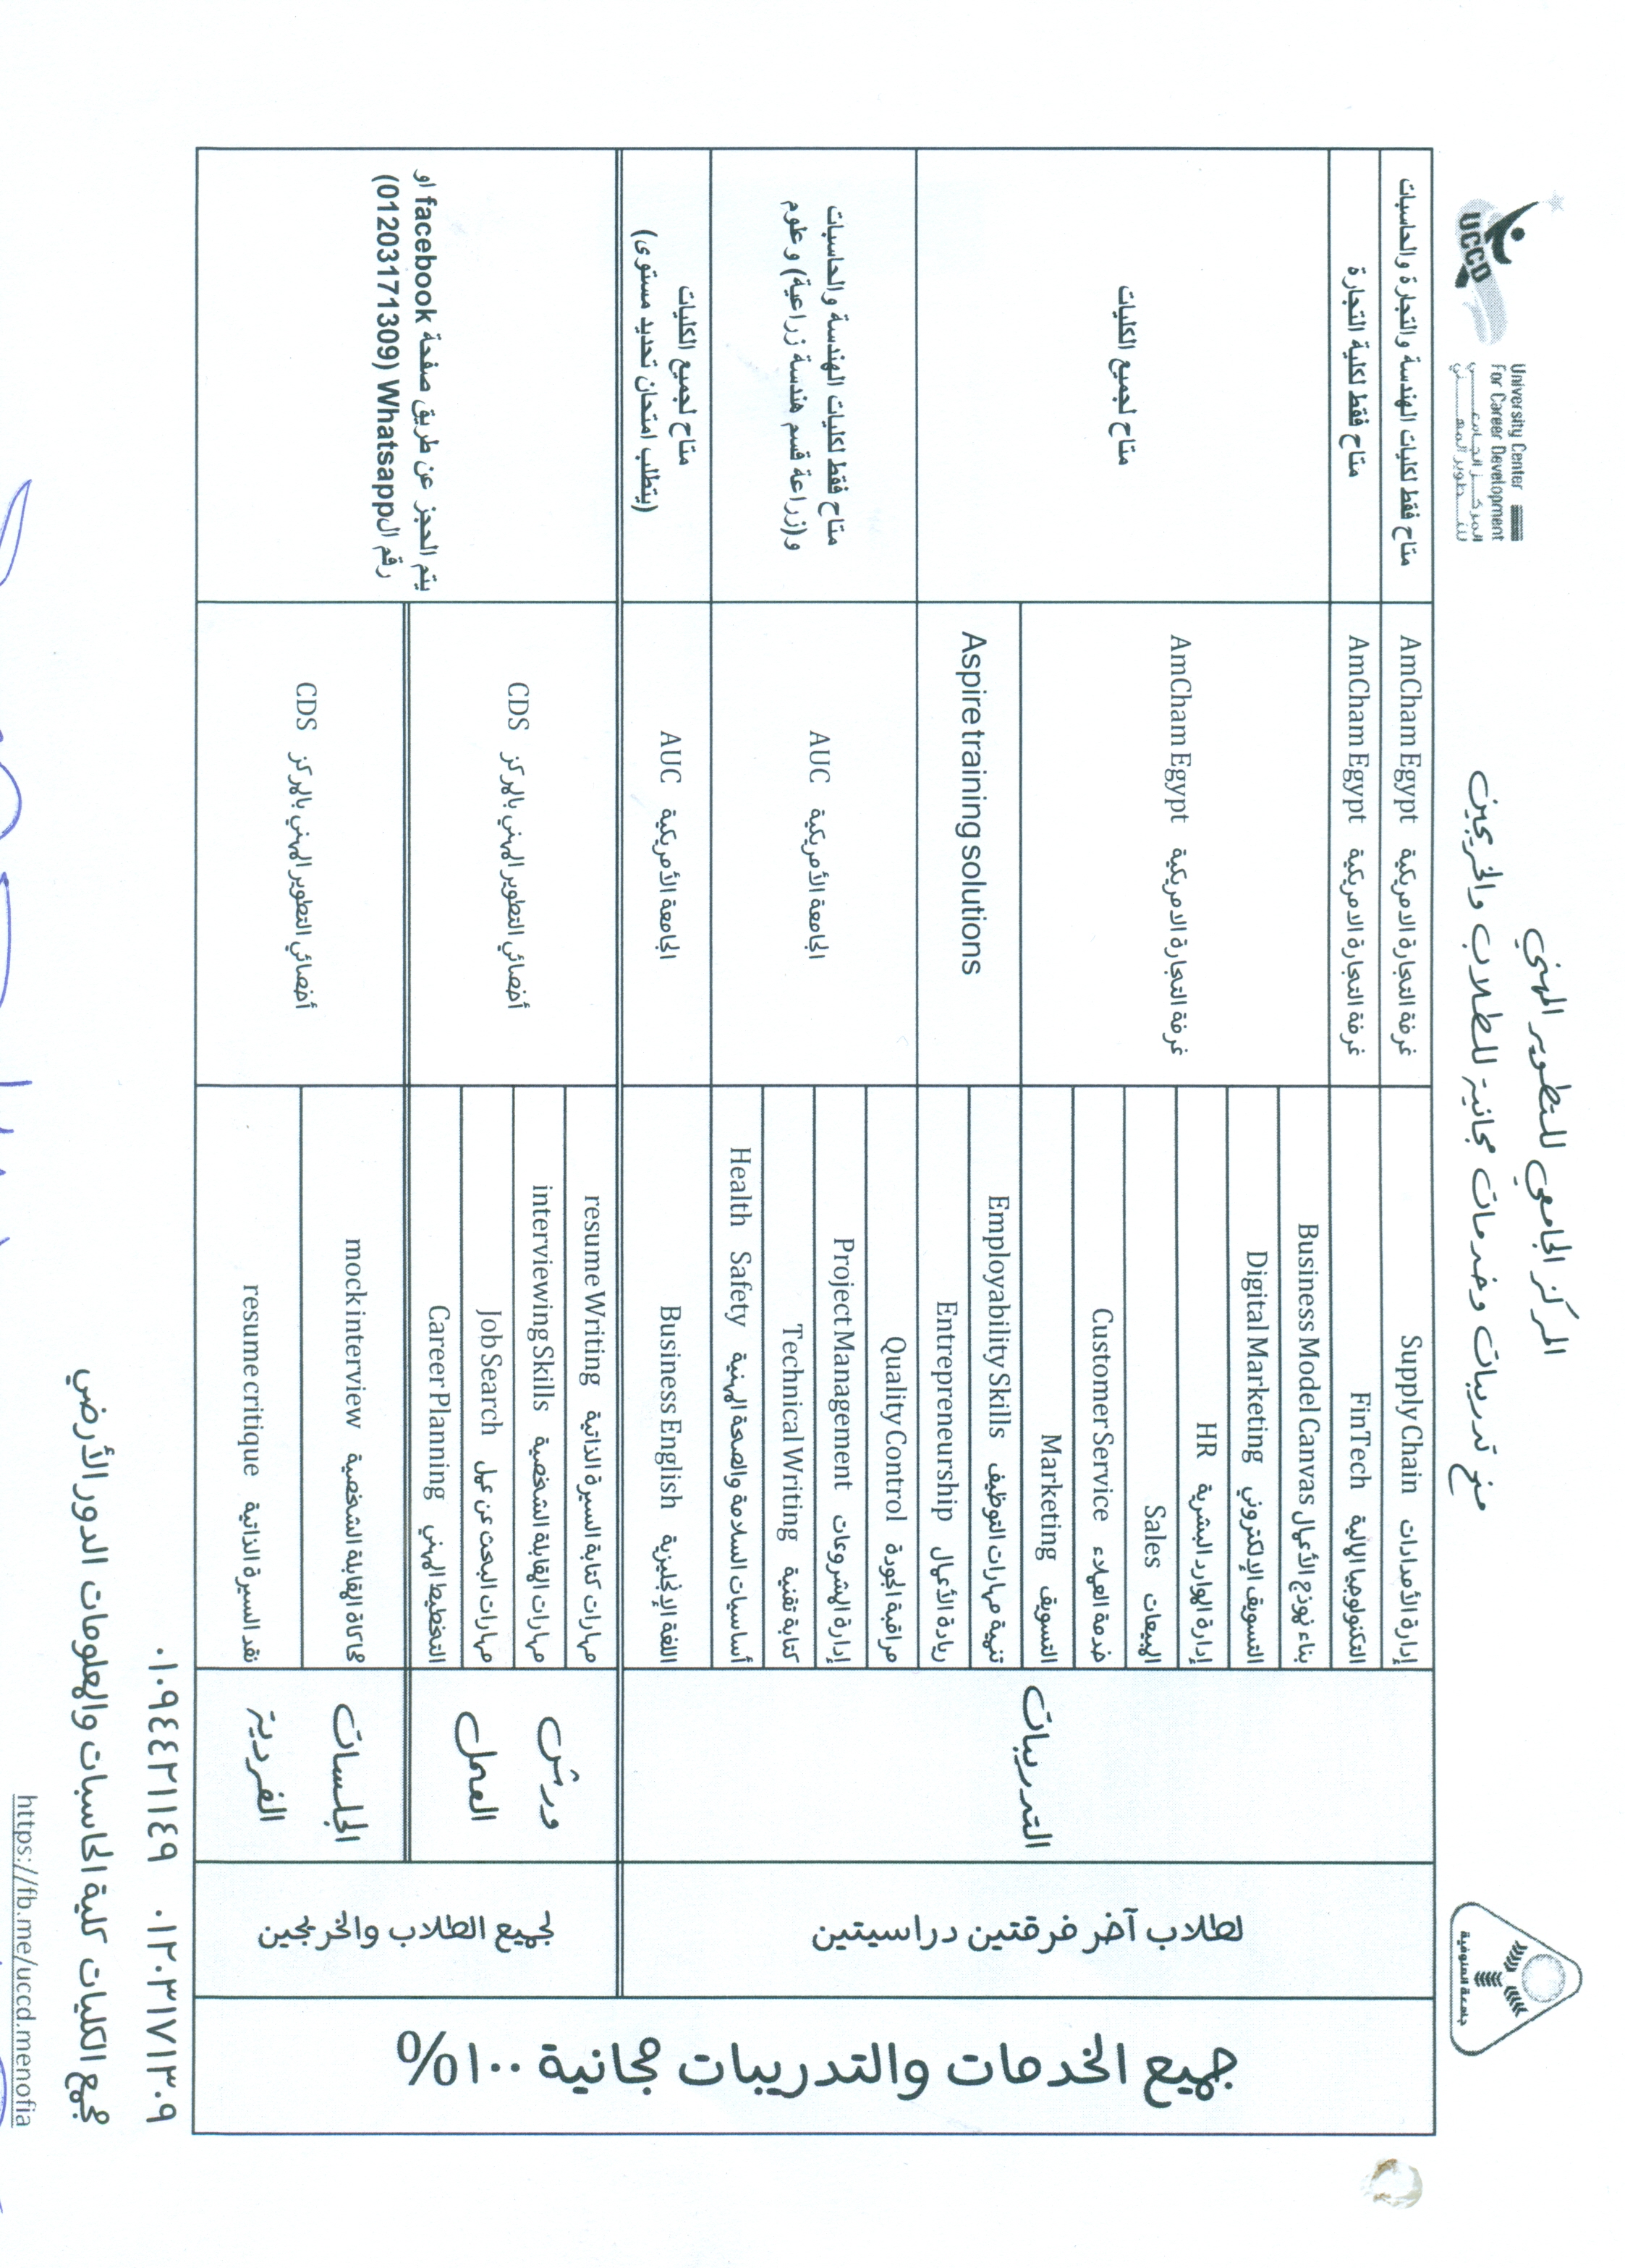 UCCD
University Center
For Career Development
المركز الجامعي
للتطوير المهني
جامعة المنوفية
المركز الجامعي للتطوير المهني
منح تدريبات وخدمات مجانية للطلاب والخريجين
جميع الخدمات والتدريبات مجانية ١٠٠%
لطلاب آخر فرقتين دراسيتين
التدريبات
إدارة الأمدادات Supply Chain
غرفة التجارة الامريكية AmCham Egypt
متاح فقط لكليات الهندسة والتجارة والحاسبات
التكنولوجيا المالية FinTech
غرفة التجارة الامريكية AmCham Egypt
متاح فقط لكلية التجارة
بناء نموذج الأعمال Business Model Canvas
التسويق الإلكتروني Digital Marketing
إدارة الموارد البشرية HR
المبيعات Sales
خدمة العملاء Customer Service
التسويق Marketing
غرفة التجارة الامريكية AmCham Egypt
متاح لجميع الكليات
تنمية مهارات التوظيف Employability Skills
ريادة الأعمال Entrepreneurship
Aspire training solutions
مراقبة الجودة Quality Control
إدارة المشروعات Project Management
كتابة تقنية Technical Writing
أساسيات السلامة والصحة المهنية Health Safety
الجامعة الأمريكية AUC
متاح فقط لكليات الهندسة والحاسبات
و(زراعة قسم هندسة زراعية) وعلوم
اللغة الإنجليزية Business English
الجامعة الأمريكية AUC
متاح لجميع الكليات
(يتطلب امتحان تحديد مستوى)
لجميع الطلاب والخريجين
ورش
العمل
مهارات كتابة السيرة الذاتية resume Writing
مهارات المقابلة الشخصية interviewing Skills
مهارات البحث عن عمل Job Search
التخطيط المهني Career Planning
أخصائي التطوير المهني بالمركز CDS
يتم الحجز عن طريق صفحة facebook او
رقم الWhatsapp (01203171309)
الجلسات
الفردية
محاكاة المقابلة الشخصية mock interview
نقد السيرة الذاتية resume critique
أخصائي التطوير المهني بالمركز CDS
٠١٠٩٤٤٢١١٤٩ ٠١٢٠٣١٧١٣٠٩
مجمع الكليات كلية الحاسبات والمعلومات الدور الأرضي
https://fb.me/uccd.menofia